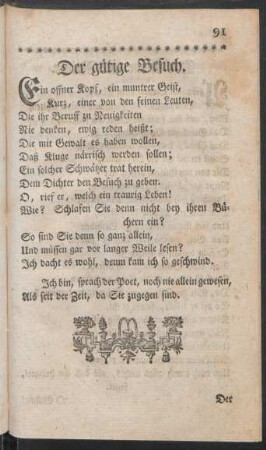 91
Der gütige Besuch.
Ein offner Kopf, ein muntrer Geist,
Kurz, einer von den feinen Leuten,
Die ihr Beruff zu Neuigkeiten
Nie denken, ewig reden heißt;
Die mit Gewalt es haben wollen,
Daß Kluge närrisch werden sollen;
Ein solcher Schwätzer trat herein,
Dem Dichter den Besuch zu geben.
O, rief er, welch ein traurig Leben!
Wie? Schlafen Sie denn nicht bey ihren Bü-
chern ein?
So sind Sie denn so ganz allein,
Und müssen gar vor langer Weile lesen?
Ich dacht es wohl, drum kam ich so geschwind.
Ich bin, sprach der Poet, noch nie allein gewesen,
Als seit der Zeit, da Sie zugegen sind.
Der